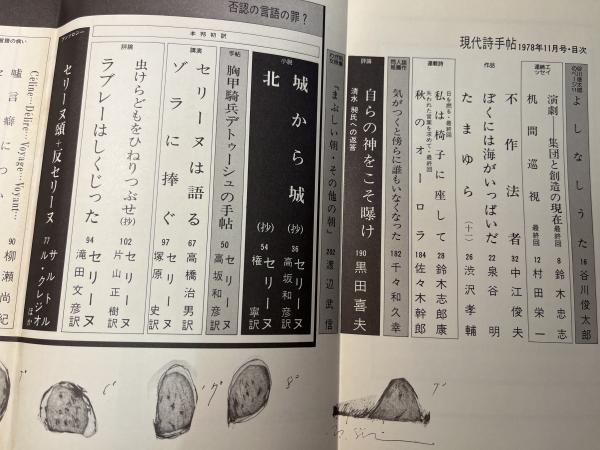 現代詩手帖 1978年11月号・目次
よしなしうた 16 谷川俊太郎
連続エッセイ
演劇―集団と創造の現在 最終回 8 鈴木忠志
机間巡視 最終回 12 村田栄一
作品
不作法者 32 中江俊夫
ぼくには海がいっぱいだ 22 泉谷明
たまゆら(十一) 26 渋沢孝輔
連載詩
日を燃る・最終回
私は椅子に座して 28 鈴木志郎康
失われた言葉を求めて・最終回
秋のオーロラ 184 佐々木幹郎
同人誌
気がつくと傍らに誰もいなくなった 182 千々和久幸
評論
自らの神をこそ曝け 190 黒田喜夫
清水昶氏への返答
『まぶしい朝・その他の朝』 202 渡辺武信
否認の言語の罪?
本邦初訳
小説
城から城(抄) 36 セリーヌ 高坂和彦訳
北(抄) 54 セリーヌ 権寧訳
手帖
胸甲騎兵デトゥーシュの手帖 50 セリーヌ 高坂和彦訳
講演
セリーヌは語る 67 高橋治男訳
ゾラに捧ぐ 97 セリーヌ 塚原史訳
評論
虫けらどもをひねりつぶせ(抄) 102 セリーヌ 片山正樹訳
ラブレーはしくじった 94 セリーヌ 滝田文彦訳
アンソロジー
セリーヌ頭+反セリーヌ 77 サルトル ル・クレジオ ほか
Céline…Délire…Voyage…Voyant…
嘘言癖につい
90 柳瀬尚紀